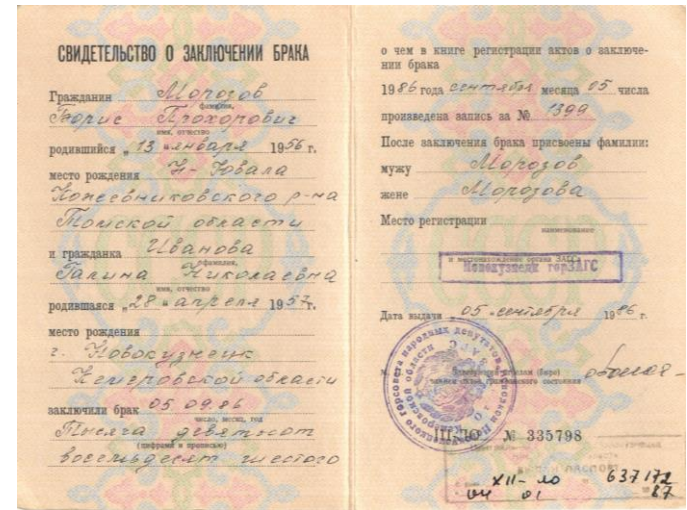 СВИДЕТЕЛЬСТВО О ЗАКЛЮЧЕНИИ БРАКА
Гражданин Морозов
фамилия,
Борис Прохорович
имя, отчество
родившийся „13 " января 1956 г.
место рождения Н-Ювала
Кожевниковского р-на
Томской области
и гражданка Иванова
фамилия,
Галина Николаевна
имя, отчество
родившаяся „28 " апреля 1957 г.
место рождения
г. Новокузнецк
Кемеровской области
заключили брак 05 09.86
число, месяц, год
Тысяча девятсот
(цифрами и прописью)
восемьдесят шестого
о чем в книге регистрации актов о заключе-
нии брака
1986 года сентября месяца 05 числа
произведена запись за № 1399
После заключения брака присвоены фамилии:
мужу Морозов
жене Морозова
Место регистрации
наименование
и местонахождение органа ЗАГСа
Новокузнецк горЗАГС
Дата выдачи „05 " сентября 1986 г.
гражданского состояния
III-ЛО № 335798
ПАСПОРТ
XII-ЛО 637172
04 01 87